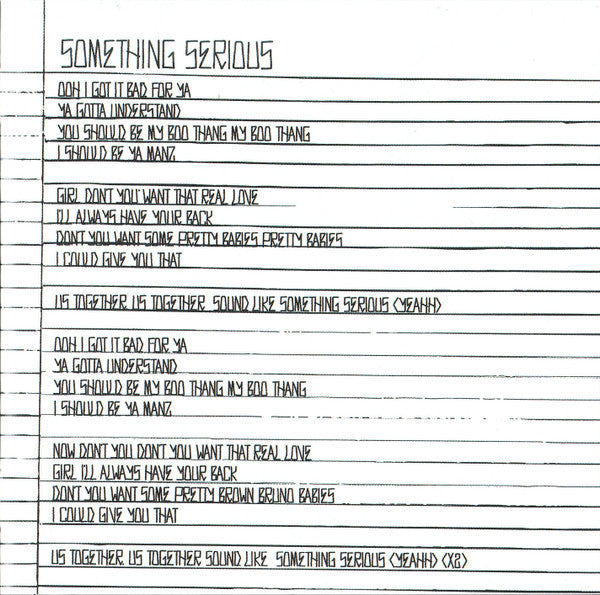 SOMETHING SERIOUS
OOH I GOT IT BAD FOR YA
YA GOTTA UNDERSTAND
YOU SHOULD BE MY BOO THANG MY BOO THANG
I SHOULD BE YA MANZ
GIRL DONT YOU WANT THAT REAL LOVE
I'LL ALWAYS HAVE YOUR BACK
DONT YOU WANT SOME PRETTY BABIES PRETTY BABIES
I COULD GIVE YOU THAT
US TOGETHER US TOGETHER SOUND LIKE SOMETHING SERIOUS (YEAHH)
OOH I GOT IT BAD FOR YA
YA GOTTA UNDERSTAND
YOU SHOULD BE MY BOO THANG MY BOO THANG
I SHOULD BE YA MANZ
NOW DONT YOU DONT YOU WANT THAT REAL LOVE
GIRL I'LL ALWAYS HAVE YOUR BACK
DONT YOU WANT SOME PRETTY BROWN BRUNO BABIES
I COULD GIVE YOU THAT
US TOGETHER US TOGETHER SOUND LIKE SOMETHING SERIOUS (YEAHH) (X2)